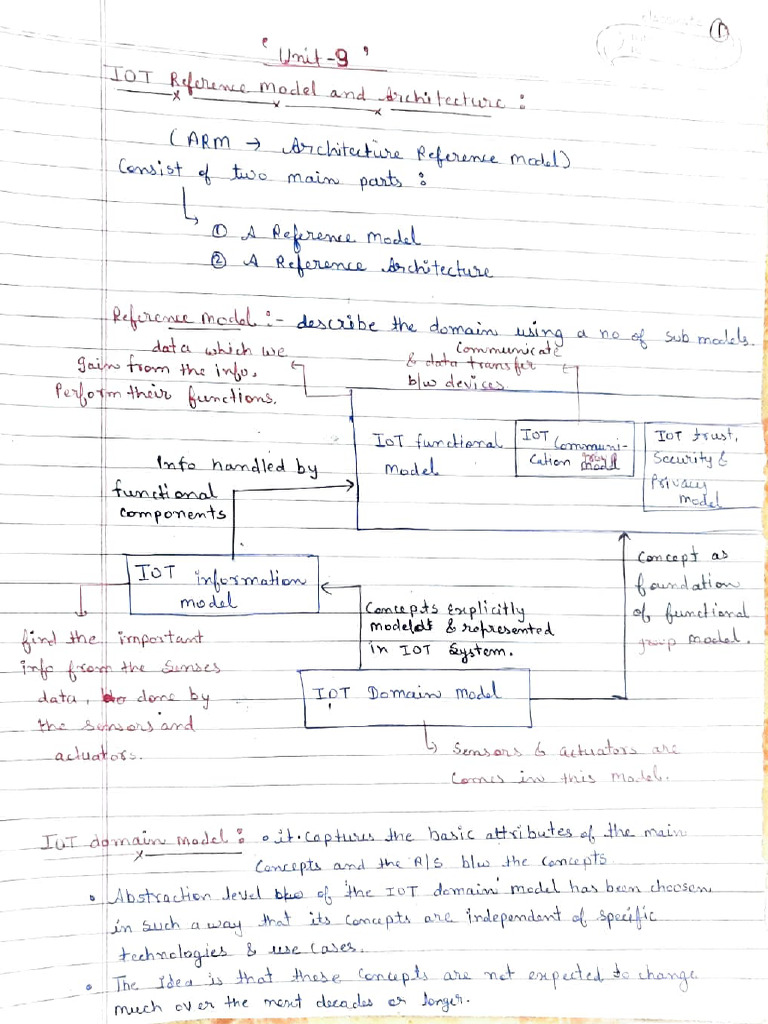 ①
" Unit-9 "
IOT Reference Model and Architecture :
(ARM → Architecture Reference Model)
Consist of two main parts :
① A Reference Model
② A Reference Architecture
Reference Model :- describe the domain using a no of sub models.
data which we
gain from the info,
Perform their functions.
Communicate
& data transfer
b/w devices
IOT functional
model
IOT Communi-
cation model
IOT trust,
Security &
Privacy
Model
Info handled by
functional
components
IOT information
model
Concepts Explicitly
modeled & represented
in IOT System.
Concept as
foundation
of functional
model.
find the important
info from the Senses
data, done by
the sensors and
actuators.
IOT Domain Model
Sensors & actuators are
Comes in this Model.
IOT domain model : • it captures the basic attributes of the main
Concepts and the R/S b/w the concepts
• Abstraction level of the IOT domain model has been choosen
in such a way that its concepts are independent of specific
technologies & use cases.
• The Idea is that these concepts are not expected to change
much over the next decades or longer.